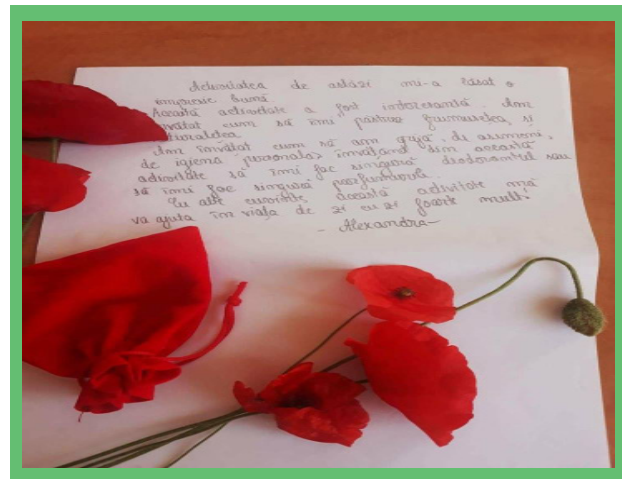 Activitatea de astăzi mi-a lăsat o
impresie bună.
Această activitate a fost interesantă. Am
învățat cum să îmi păstrez frumusețea, și
Am învățat cum să am grijă, de asemeni,
de igiena personală, învățând din această
activitate să îmi fac singură deodorantul sau
să îmi fac singură parfumul.
Cu alte cuvinte, această activitate mă
va ajuta în viața de zi cu zi foarte mult.
- Alexandra -